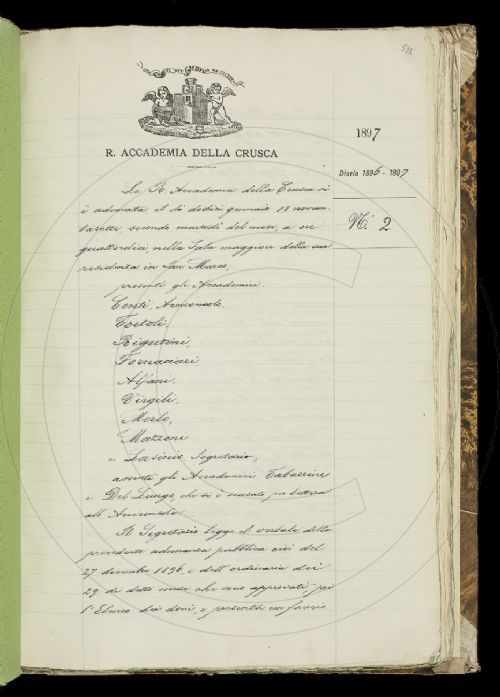 532
R. ACCADEMIA DELLA CRUSCA
1897
Diario 1896 - 1897
N.º 2
La R. Accademia della Crusca si
è adunata il dì dodici gennaio 18 novan-
tasette, secondo martedì del mese, a ore
quattordici, nella Sala maggiore della sua
residenza in San Marco,
presenti gli Accademici
Conti, Arciconsolo,
Tortoli,
Rigutini,
Fornaciari,
Alfani,
Virgili,
Merlo,
Mazzoni
e Lasinio, Segretario,
assenti gli Accademici Tabarrini
e Del Lungo, che si è scusato per lettera
all'Arciconsolo.
Il Segretario legge il verbale della
precedente adunanza pubblica cioè del
27 decembre 1896, e dell'ordinaria dei
29 di detto mese, che sono approvati; poi
l'Elenco dei doni, e presenta